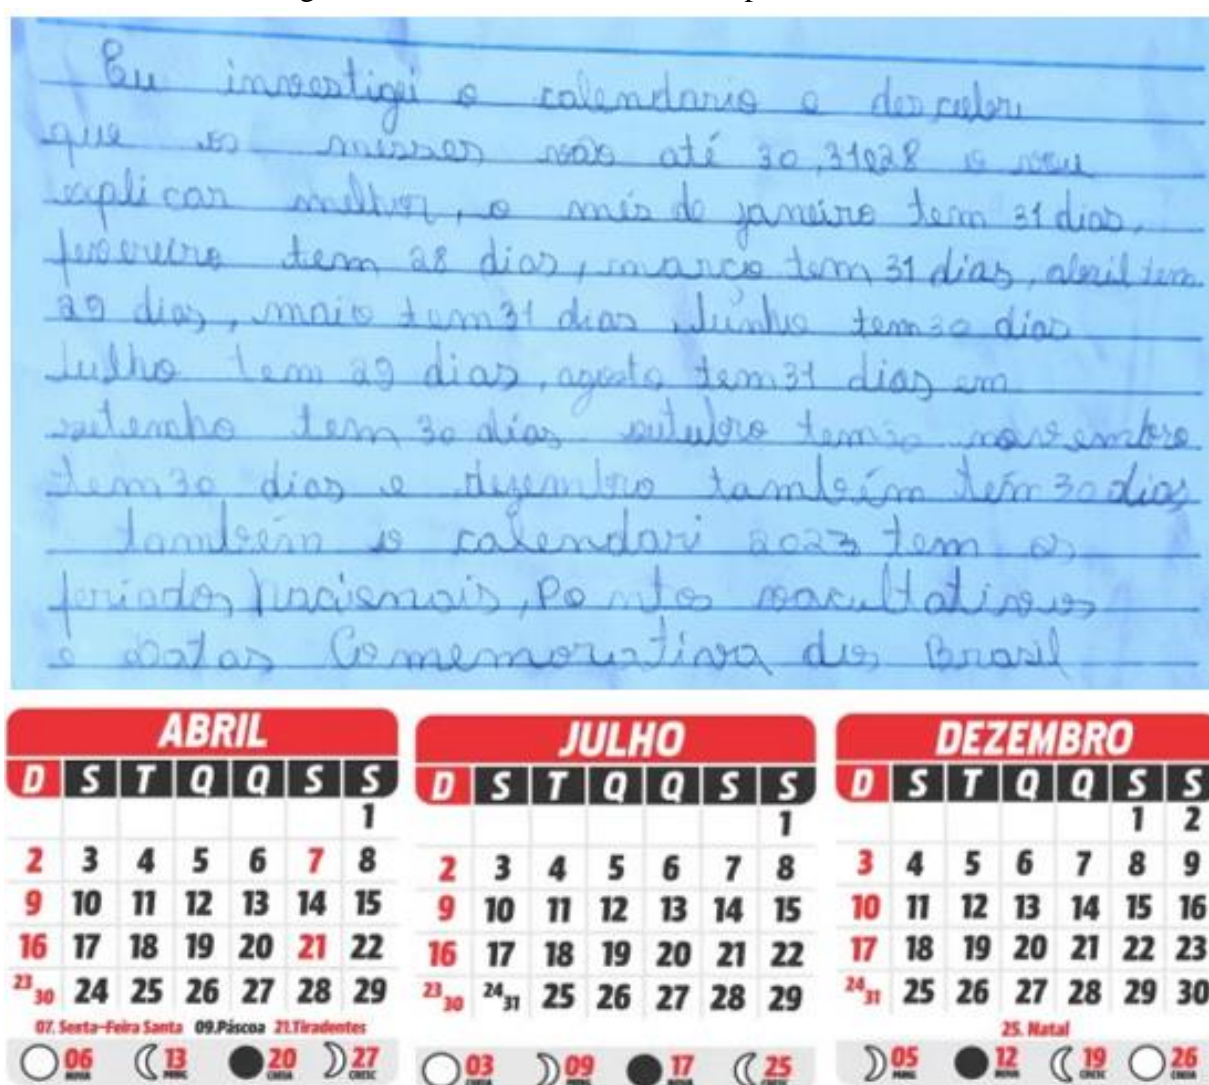 Eu investigei o calendario e descubri
que os messes vão até 30,31e28 e vou
explicar melhor, o mês de janeiro tem 31 dias,
fevereiro tem 28 dias, março tem 31 dias, abril tem
29 dias, maio tem 31 dias, Junho tem 30 dias
Julho tem 29 dias, agosto tem 31 dias em
setembo tem 30 dias outubro tem novembro
tem 30 dias e dezembro também tem 30 dias
também o calendari 2023 tem os
feriados Nacionais, Pontos facultativos
e Datas Comemorativa do Brasil
ABRIL
D S T Q Q S S
1
2 3 4 5 6 7 8
9 10 11 12 13 14 15
16 17 18 19 20 21 22
23 30 24 25 26 27 28 29
07. Sexta-Feira Santa 09.Páscoa 21.Tiradentes
06 13 20 27
NOVA MING CHEIA CRESC
JULHO
D S T Q Q S S
1
2 3 4 5 6 7 8
9 10 11 12 13 14 15
16 17 18 19 20 21 22
23 30 24 31 25 26 27 28 29
03 09 17 25
CHEIA MING NOVA CRESC
DEZEMBRO
D S T Q Q S S
1 2
3 4 5 6 7 8 9
10 11 12 13 14 15 16
17 18 19 20 21 22 23
24 31 25 26 27 28 29 30
25. Natal
05 12 19 26
MING NOVA CRESC CHEIA